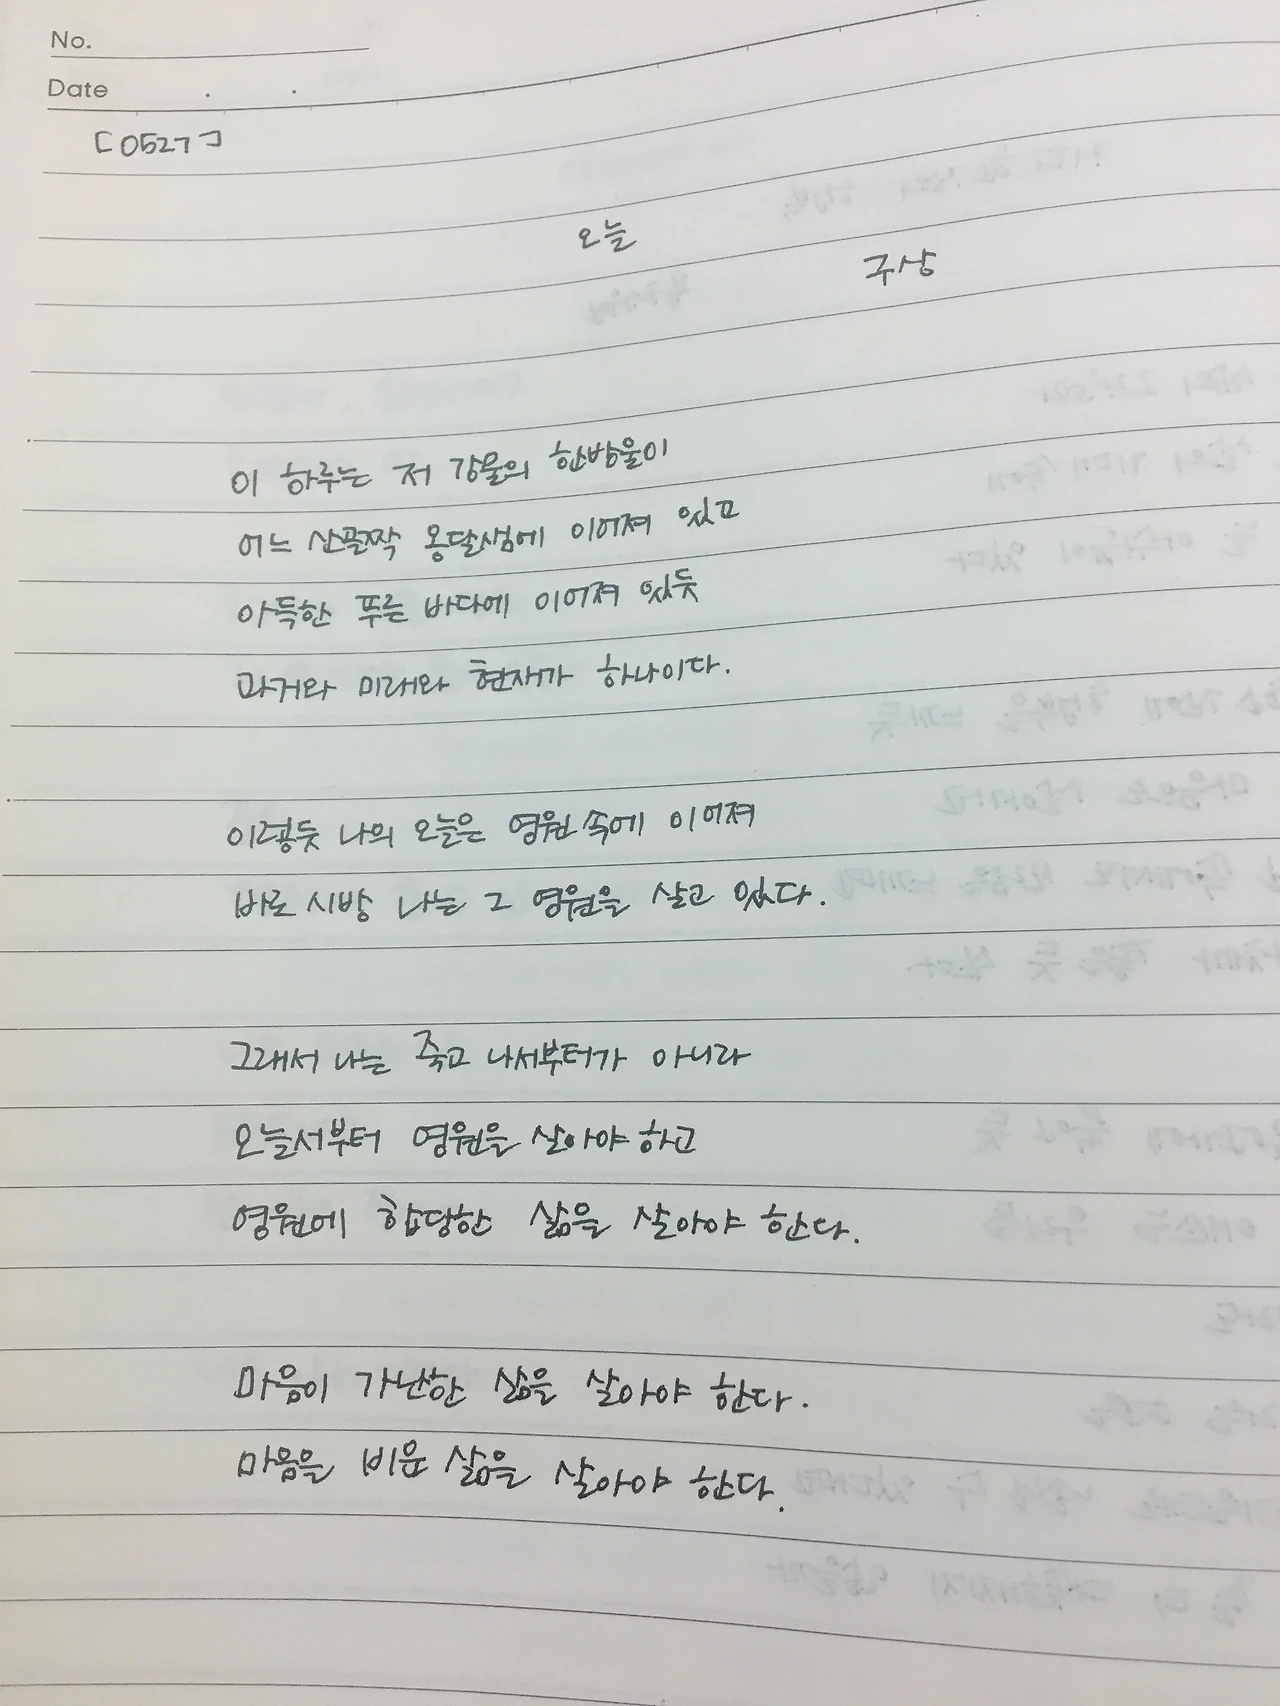 No.
Date . .
[0527]
오늘
구상
이 하루는 저 강물의 한방울이
어느 산골짝 옹달샘에 이어져 있고
아득한 푸른 바다에 이어져 있듯
과거와 미래와 현재가 하나이다.
이렇듯 나의 오늘은 영원 속에 이어져
바로 시방 나는 그 영원을 살고 있다.
그래서 나는 죽고 나서부터가 아니라
오늘서부터 영원을 살아야 하고
영원에 합당한 삶을 살아야 한다.
마음이 가난한 삶을 살아야 한다.
마음을 비운 삶을 살아야 한다.